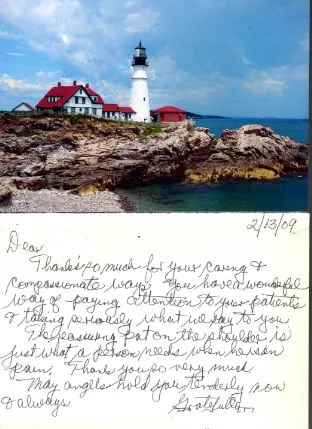 2/13/09
Dear
Thanks so much for your caring &
compassionate ways. You have a wonderful
way of paying attention to your patients
& taking seriously what we say to you
The reassuring pat on the shoulder is
just what a person needs when he is in
pain. Thank you so very much
May angels hold you tenderly now
& always
Gratefully,